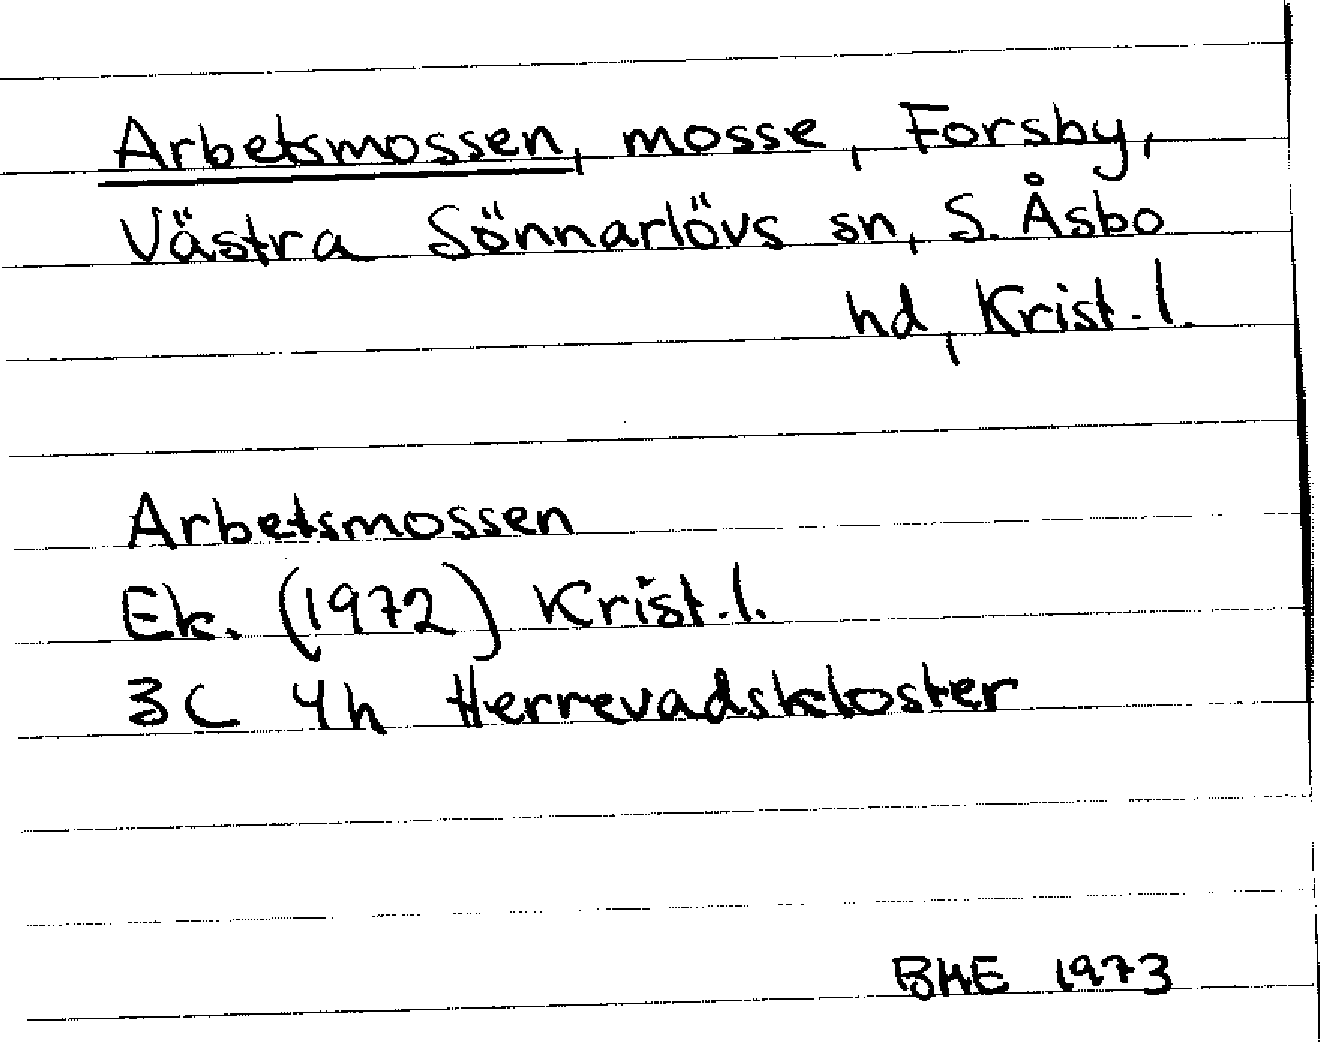 Arbetsmossen, mosse, Forsby,
Västra Sönnarlövs sn, S. Åsbo
hd, Krist. l.
Arbetsmossen
Ek. (1972) Krist. l.
3C 4h Herrevadskloster
BHE 1973